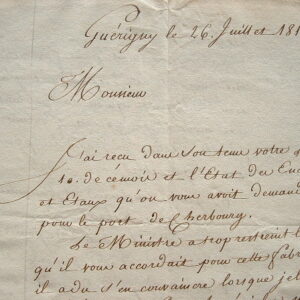 Guérigny le 26 Juillet 181
Monsieur
J'ai reçu dans son tems votre
10. de ce mois et l'Etat des
et Etaux qu'on vous avoit demand
pour le port de Cherbourg.
Le Ministre a trop restreint l
qu'il vous accordait pour cette fab
il a du s'en convaincre lorsque je l